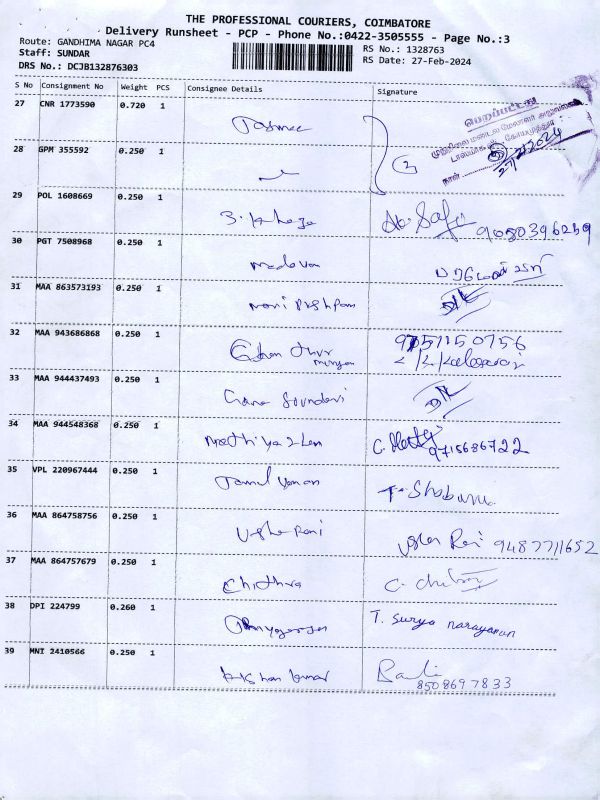 THE PROFESSIONAL COURIERS, COIMBATORE
Delivery Runsheet - PCP - Phone No.:0422-3505555 - Page No.:3
Route: GANDHIMA NAGAR PC4
RS No.: 1328763
Staff: SUNDAR
RS Date: 27-Feb-2024
DRS No.: DCJB132876303
S No Consignment No Weight PCS Consignee Details Signature
27 CNR 1773590 0.720 1
பெறப்பட்டது
நாள் 27/2/2024
28 GPM 355592 0.250 1
29 POL 1608669 0.250 1
9080396259
30 PGT 7508968 0.250 1 Madavan
31 MAA 863573193 0.250 1 Mani Pushpam
32 MAA 943686868 0.250 1
9751150756
33 MAA 944437493 0.250 1 Gana Soundari
34 MAA 944548368 0.250 1
9715686722
35 VPL 220967444 0.250 1 T. Shabana
36 MAA 864758756 0.250 1 Usha Rani Usha Rani 9487711652
37 MAA 864757679 0.250 1 Chithra C. Chithra
38 DPI 224799 0.260 1 T. Surya narayanan
39 MNI 2410566 0.250 1
8508697833